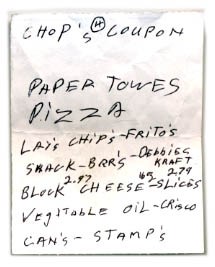 CHOP'S H COUPON
PAPER TOWES
PIZZA
LAY'S CHIP'S-FRITO'S
SNACK-BRR'S-DEBBIES
KRAFT
2.97 165 2.79
BLOCK CHEESE-SLICES
VEGITABLE OIL-CRISCO
CAN'S-STAMP'S